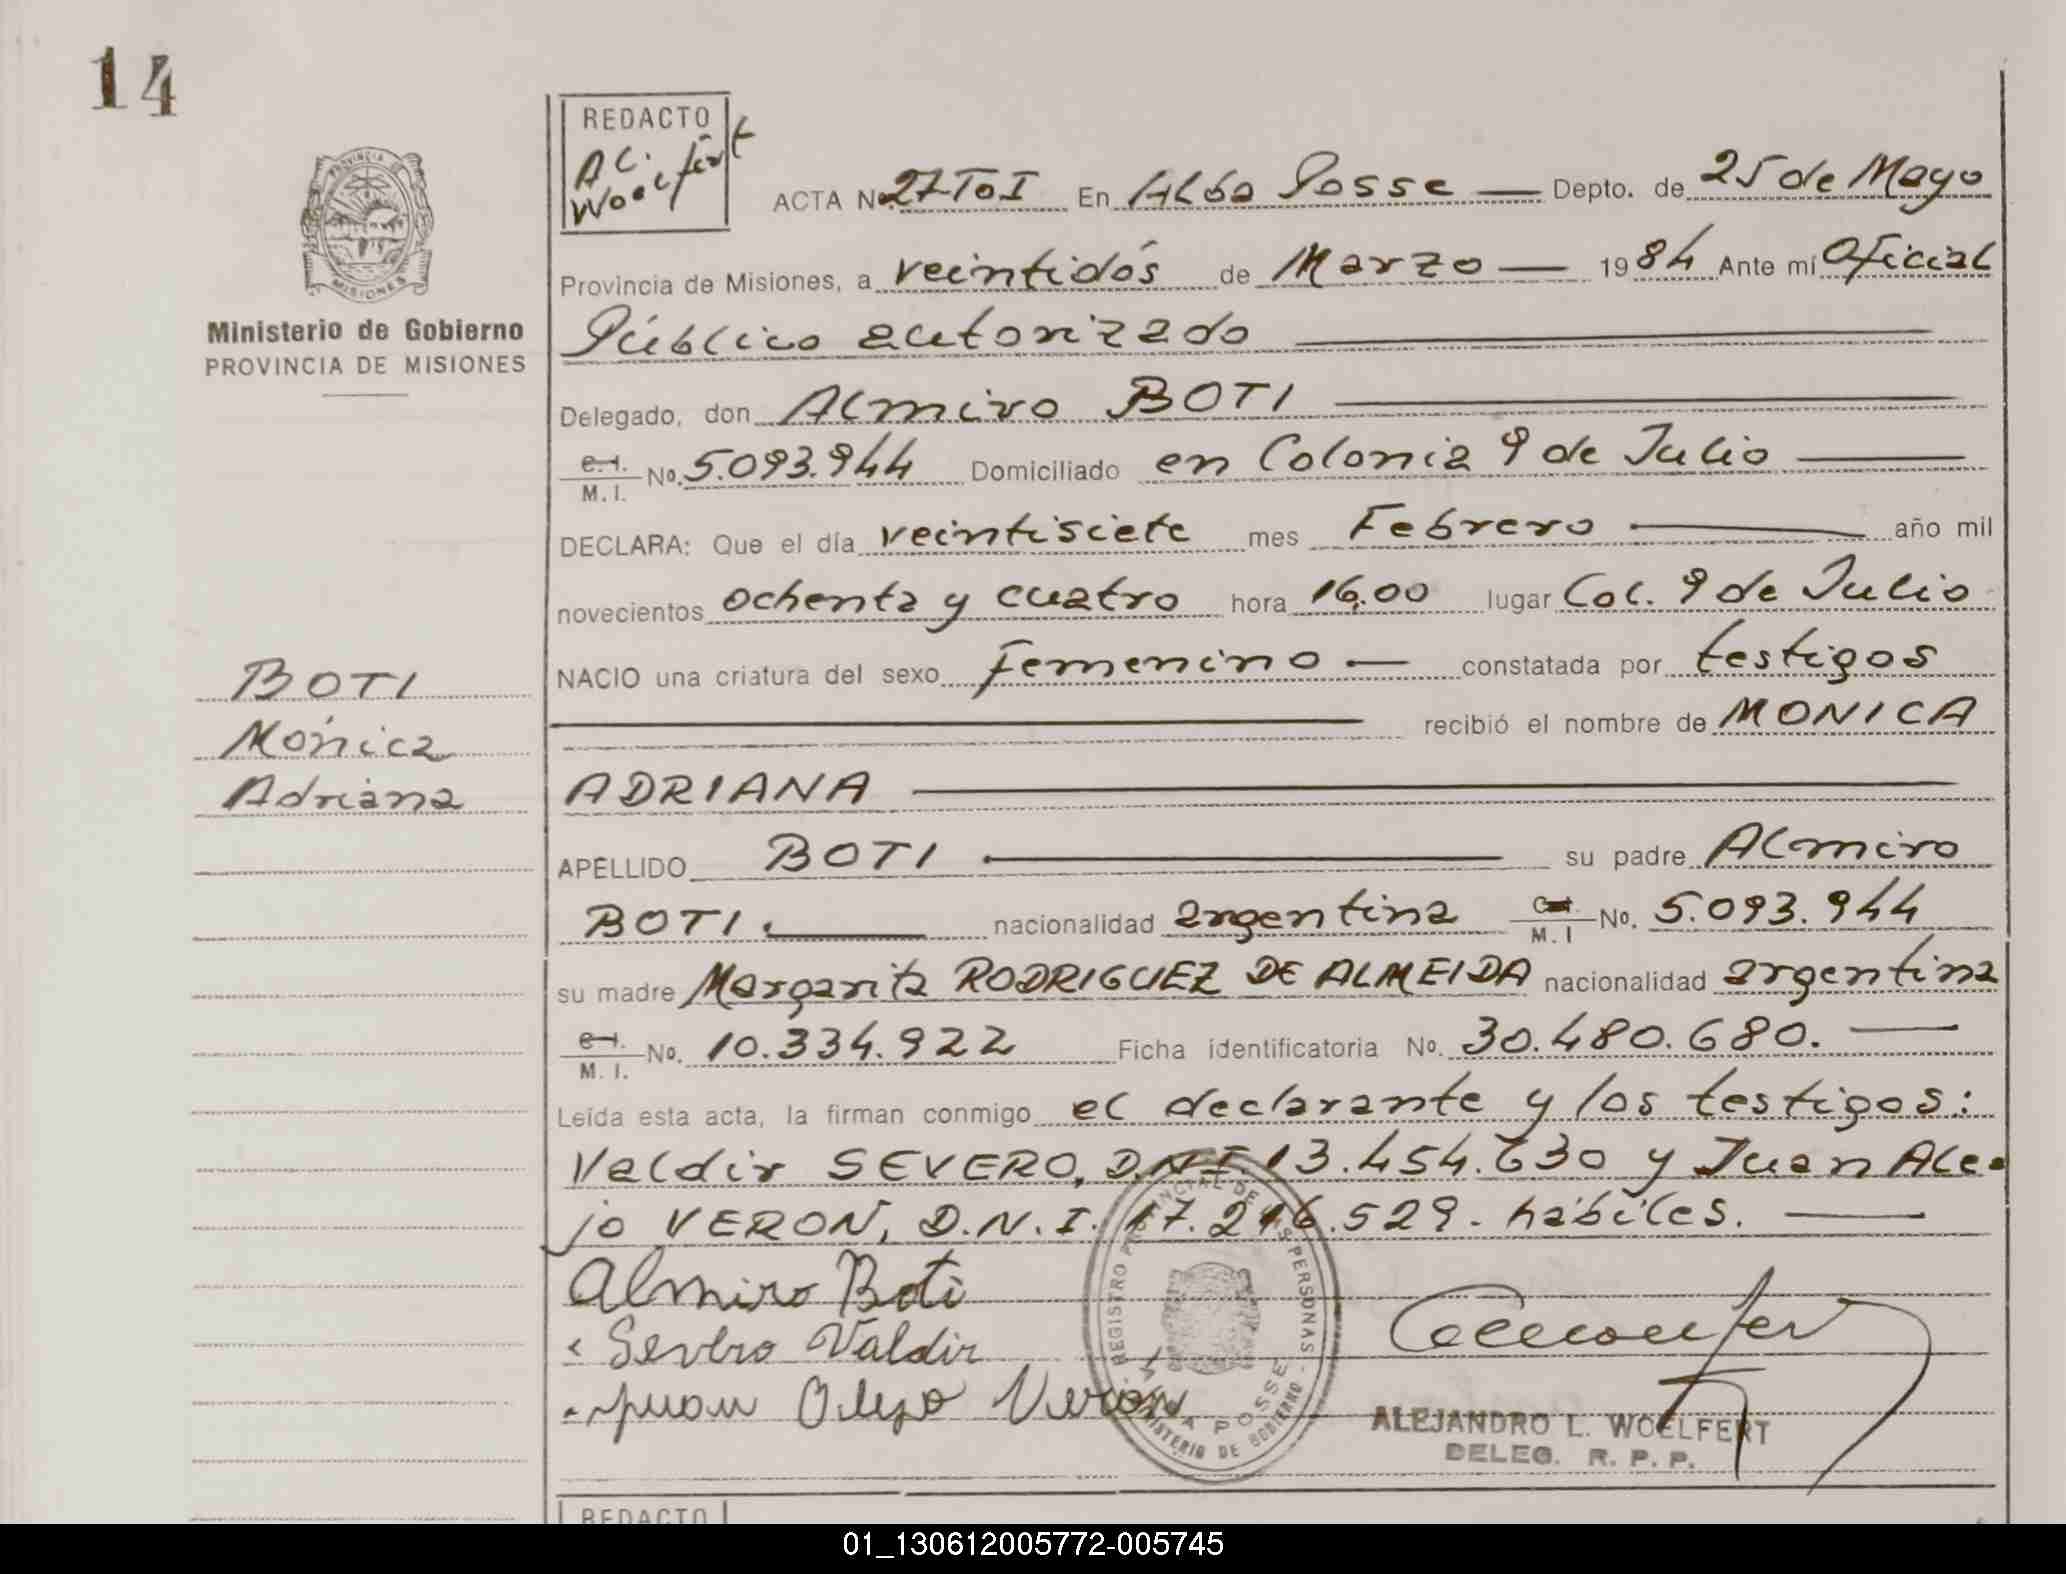 14
REDACTO
Al. Woelfert
ACTA Nº 27 To I En Alba Posse — Depto. de 25 de Mayo
Provincia de Misiones, a veintidós de Marzo — 1984 Ante mí Oficial
Ministerio de Gobierno
PROVINCIA DE MISIONES
Público autorizado
Delegado, don Almiro BOTI
C.I. M.I. No. 5.093.944 Domiciliado en Colonia 9 de Julio
DECLARA: Que el día veintisiete mes Febrero año mil
novecientos ochenta y cuatro hora 16,00 lugar Col. 9 de Julio
NACIO una criatura del sexo femenino — constatada por testigos
recibió el nombre de MONICA
ADRIANA
BOTI
Mónica
Adriana
APELLIDO BOTI su padre Almiro
BOTI. nacionalidad argentina C.I. M.I No. 5.093.944
su madre Margarita RODRIGUEZ DE ALMEIDA nacionalidad argentina
C.I. M.I. No. 10.334.922 Ficha identificatoria No. 30.480.680. —
Leída esta acta, la firman conmigo el declarante y los testigos:
Valdir SEVERO, D.N.I. 13.454.630 y Juan Ale-
jo VERON, D.N.I. 17.216.529. hábiles. —
Almiro Boti
Severo Valdir
Juan Alejo Veron
REGISTRO PROVINCIAL DE LAS PERSONAS
ALBA POSSE
MINISTERIO DE GOBIERNO
ALEJANDRO L. WOELFERT
DELEG. R. P. P.
REDACTO
01_130612005772-005745